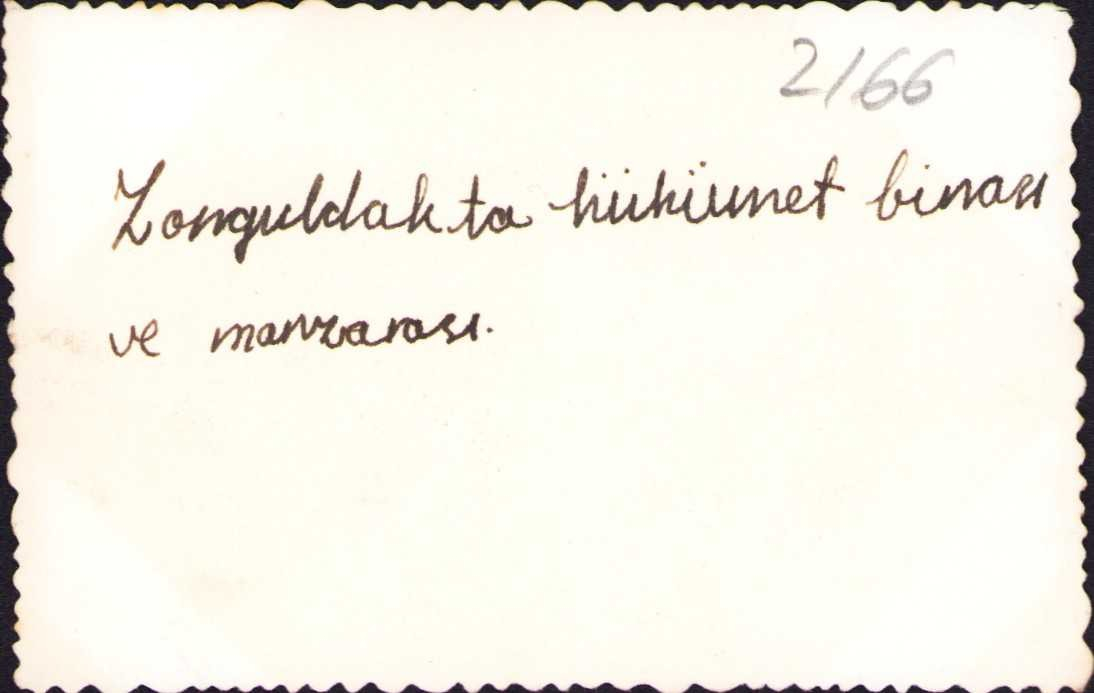 2/66
Zonguldakta hükümet binası
ve manzarası.